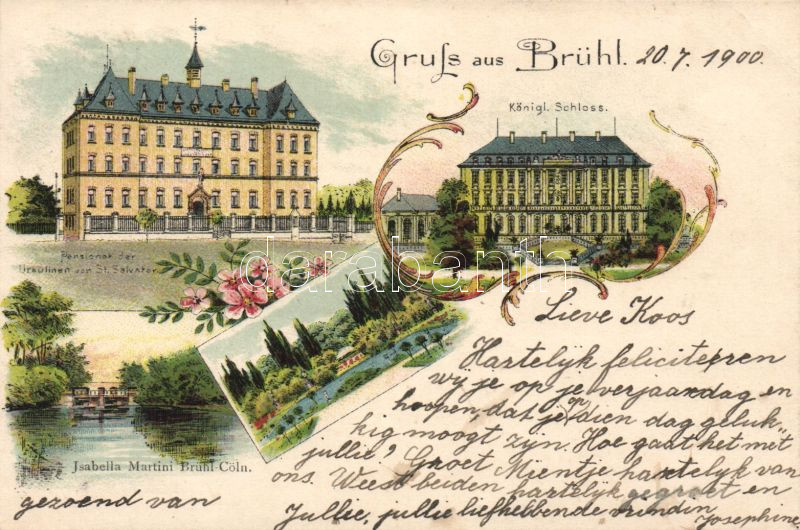 Gruß aus Brühl. 20.7.1900.
Königl. Schloss.
Pensionat der
Ursulinen von St. Salvator
darabanth.com
Lieve Koos
Hartelijk feliciteeren
wij je op je verjaardag en
hoopen, dat je op dien dag geluk-
kig moogt zijn. Hoe gaat het met
jullie? Groet Mientje hartelijk van
ons. Weest beiden hartelijk gegroet en
gezoend van Jullie, jullie liefhebbende vrindin
Josephine
Jsabella Martini Brühl-Cöln.